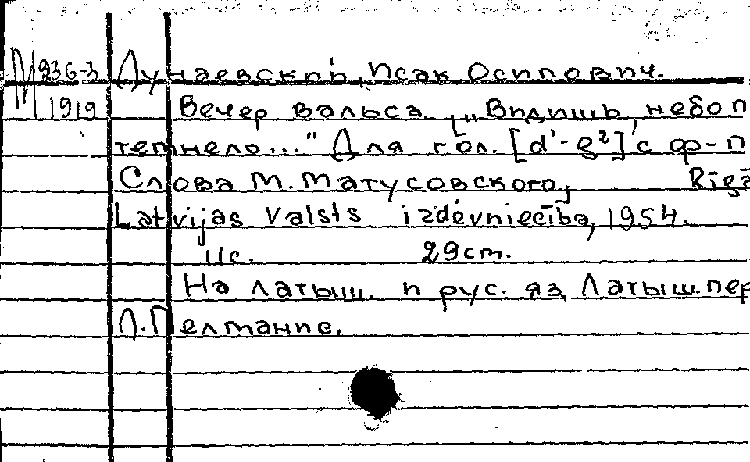 М 936-3 Дунаевский, Исак Осипович.
М 1919 Вечер вальса. ["Видишь, небо п
темнело..." Для гол. [d'-g²] с ф-п
Слова М. Матусовского, Rīgā
Latvijas Valsts izdevniecība, 1954.
11с. 29cm.
На латыш. и рус. яз. Латыш. пер
Л. Пелмание.